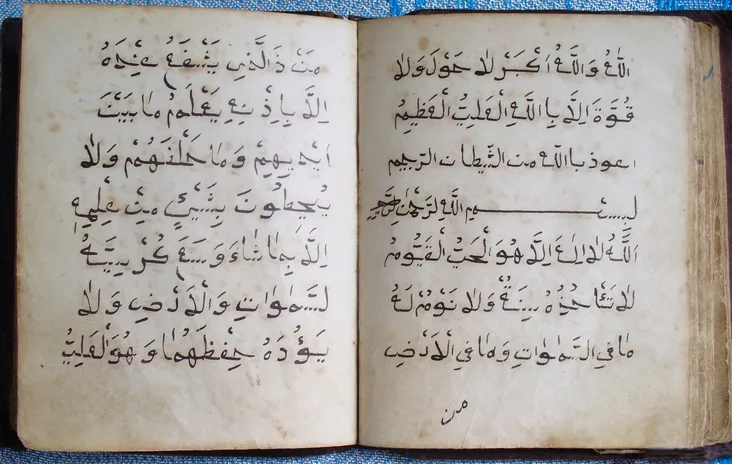 اللّٰهُ وَاللَّهُ اَكْبَرْ لَا حَوْلَ وَلَا
قُوَّةَ اِلَّا بِا اللَّهِ الْعَلِيُّ الْعَظِيْمُ
اعوذ با الله من الشيطان الرجيم
بسم اللّه الرّحمٰن الرّحيم
اَللَّهُ لَا اِلٰهَ اِلَّا هُوَ الْحَيُّ الْقَيُّومُ
لَا تَئَا خُذُهُ سِنَةٌ وَلَا نَوْمٌ لَهُ
مَا فِي السَّمٰوٰاتِ وَمٰا فِي الْاَرْضِ
من
مَنْ ذَ الَّذِي يَشْفَعُ عِنْدَهُ
اِلَّا بِاِذْنِهِ يَعْلَمُ مٰا بَيْنَ
اَيْدِيهِمْ وَمٰا خَلْفَهُمْ وَلَا
يُحِيطُونَ بِشَيْئٍ مِنْ عِلْمِهِ
اِلَّا بِمٰا شٰاءَ وَسِعَ كُرْسِيُّهُ
لسَّمٰوٰاتِ وَالْاَرْضِ وَلَا
يَؤُدُهُ حِفْظَهُمٰا وَهُوَ الْعَلِيُّ